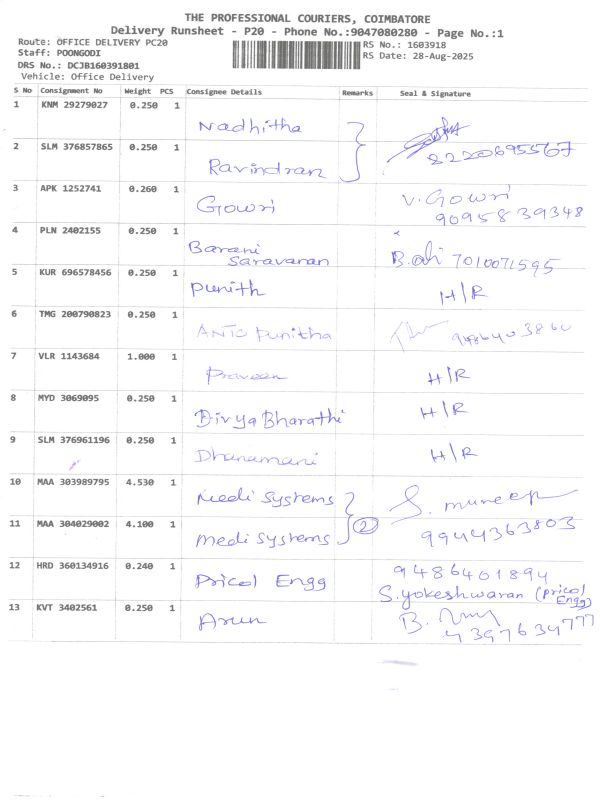 THE PROFESSIONAL COURIERS, COIMBATORE
Delivery Runsheet - P20 - Phone No.:9047080280 - Page No.:1
Route: OFFICE DELIVERY PC20
RS No.: 1603918
Staff: POONGODI
RS Date: 28-Aug-2025
DRS No.: DCJB160391801
Vehicle: Office Delivery
S No Consignment No Weight PCS Consignee Details Remarks Seal & Signature
1 KNM 29279027 0.250 1 Nadhitha
2 SLM 376857865 0.250 1 Ravindran 8220695567
3 APK 1252741 0.260 1 Gowri V. Gowri
9095839348
4 PLN 2402155 0.250 1 Barani
Saravanan 7010071595
5 KUR 696578456 0.250 1 Punith H/R
6 TMG 200790823 0.250 1 ANTO Punitha
7 VLR 1143684 1.000 1 Praveen H/R
8 MYD 3069095 0.250 1 DivyaBharathi H/R
9 SLM 376961196 0.250 1 Dhanamani H/R
10 MAA 303989795 4.530 1 Medi Systems
11 MAA 304029002 4.100 1 Medi Systems 2 9944363803
12 HRD 360134916 0.240 1 Pricol Engg 9486401894
S.yokeshwaran (Pricol
Engg)
13 KVT 3402561 0.250 1 Arun